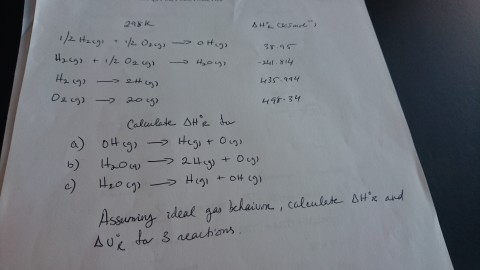 298K ΔH°R (kJ mol⁻¹)
1/2 H₂(g) + 1/2 O₂(g) → OH(g) 38.95
H₂(g) + 1/2 O₂(g) → H₂O(g) -241.814
H₂(g) → 2H(g) 435.994
O₂(g) → 2O(g) 498.34
Calculate ΔH°R for
a) OH(g) → H(g) + O(g)
b) H₂O(g) → 2H(g) + O(g)
c) H₂O(g) → H(g) + OH(g)
Assuming ideal gas behaiour, calculate ΔH°R and
ΔU°R for 3 reactions.